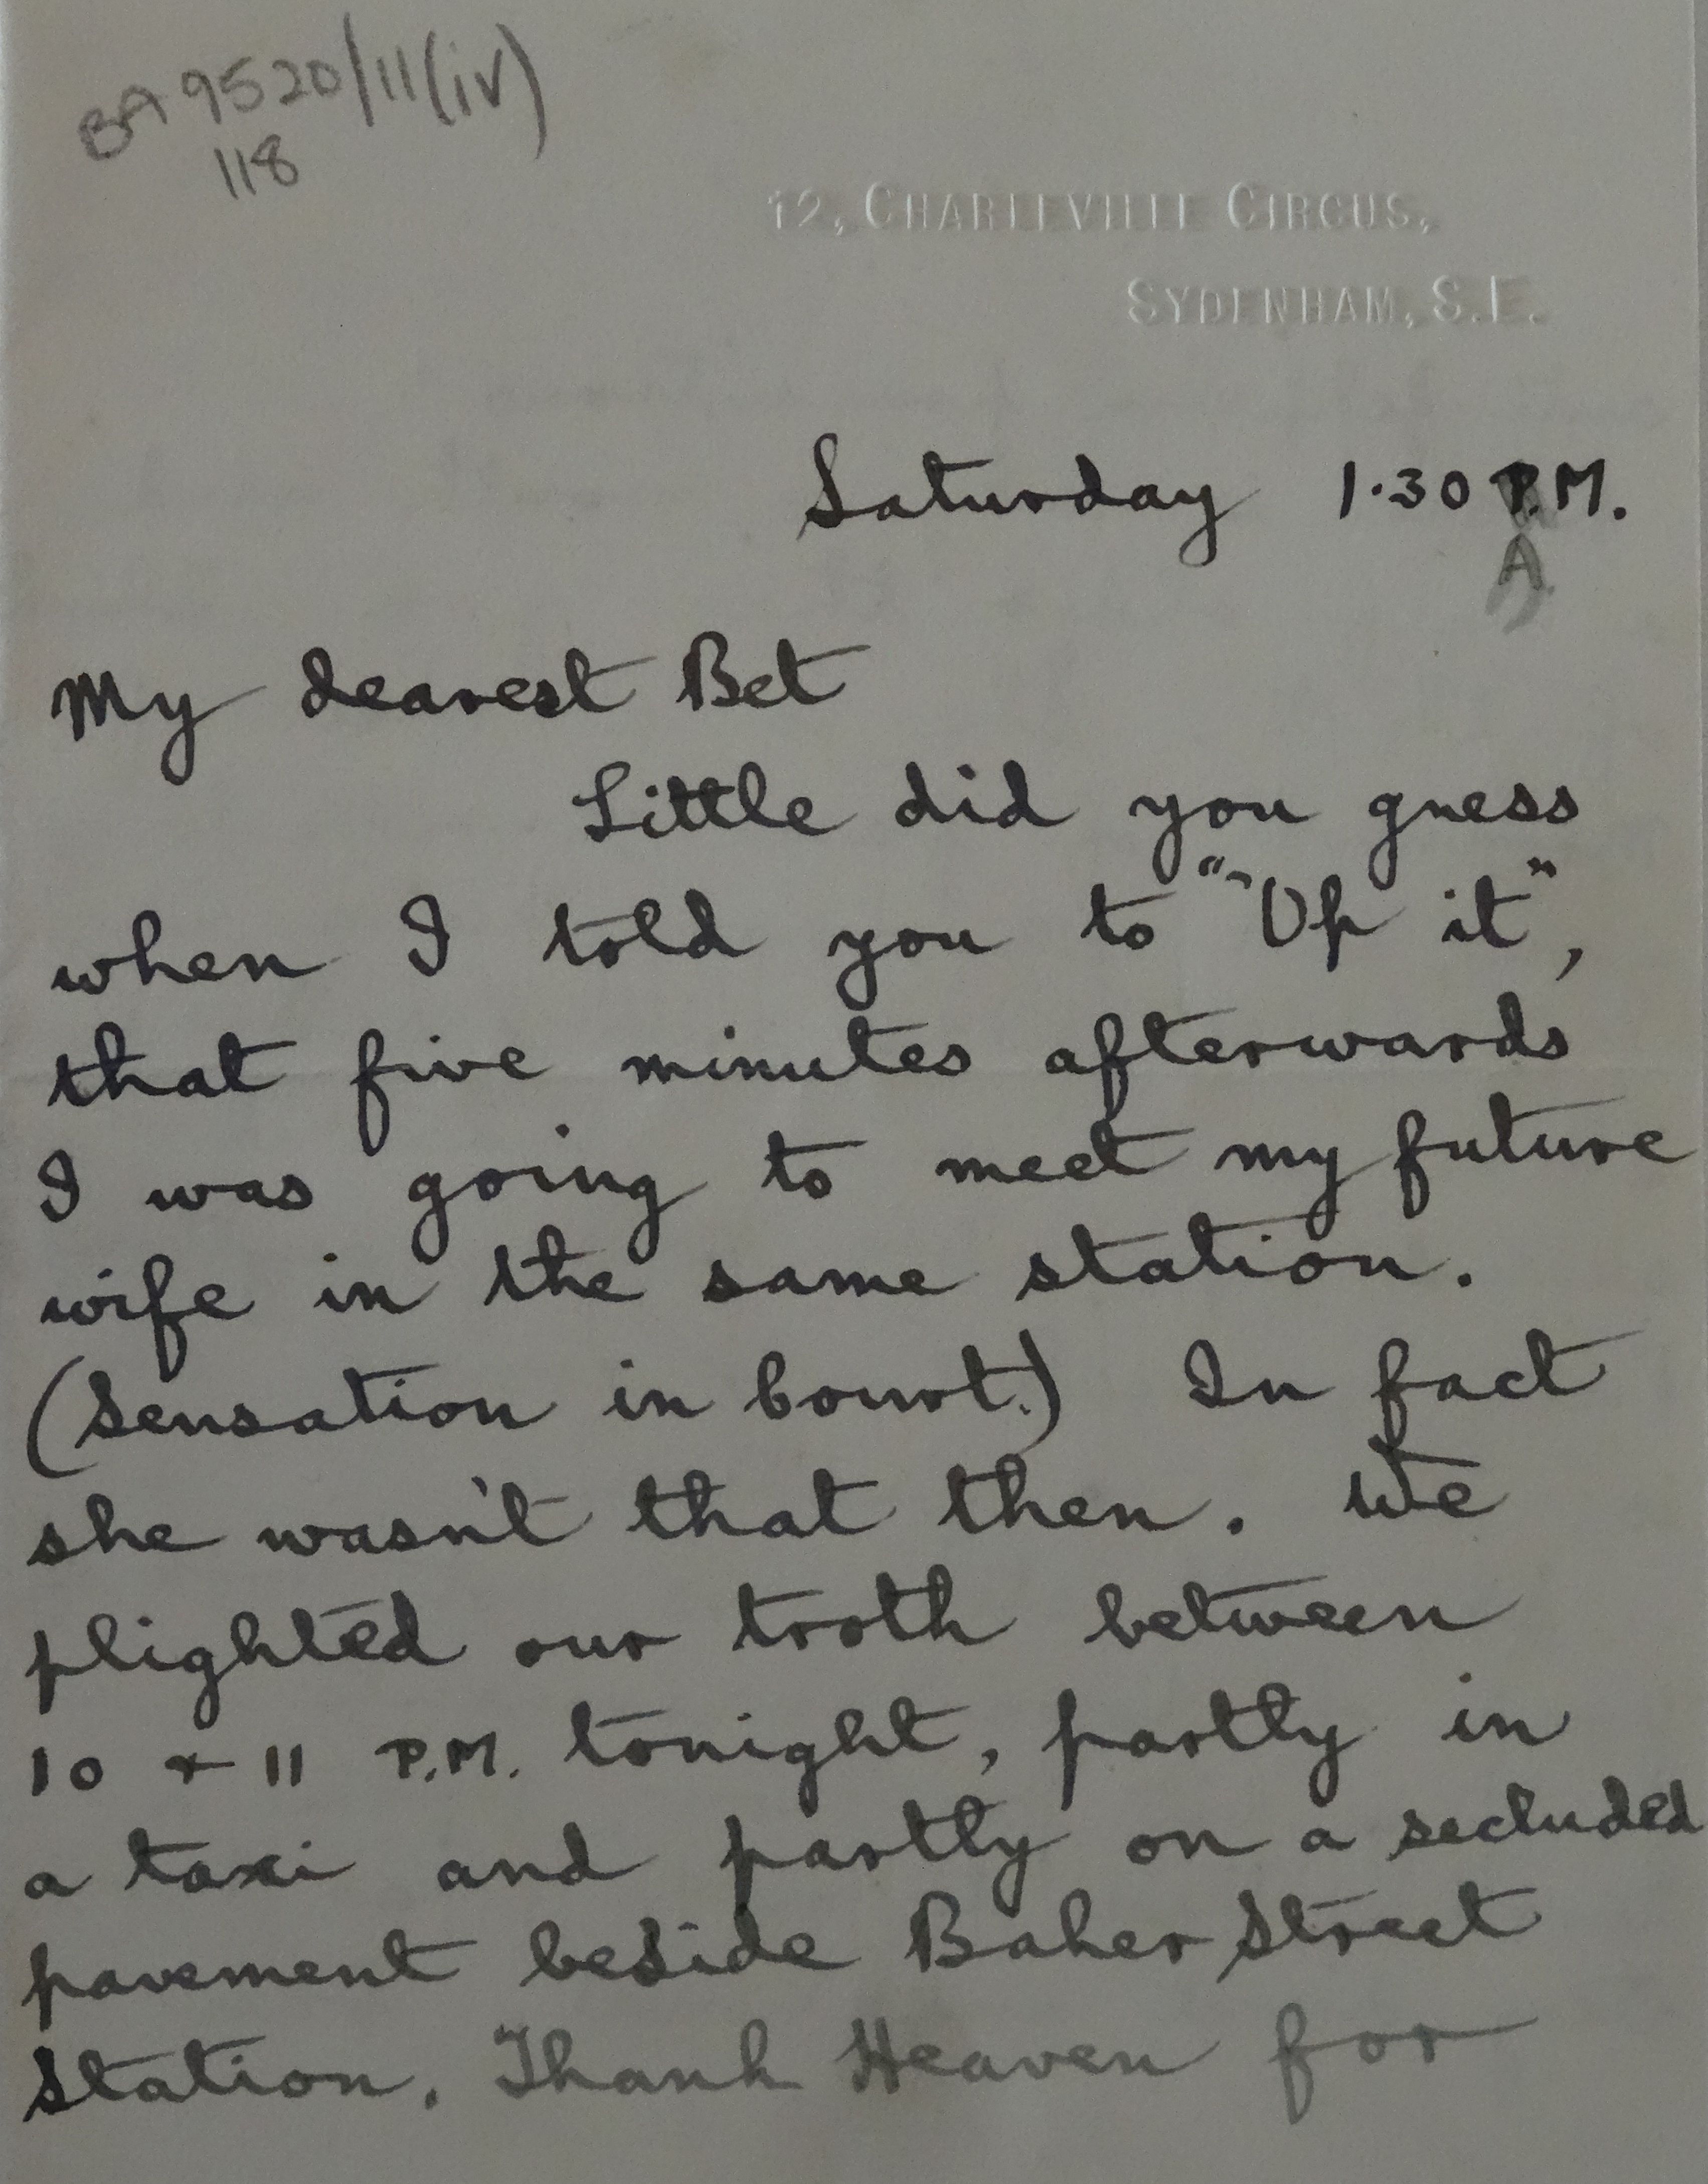 BA 9520/11(iv)
118
12, CHARLEVILLE CIRCUS,
SYDENHAM, S.E.
Saturday 1.30 P.M.
A
My dearest Bet
Little did you guess
when I told you to "Op it",
that five minutes afterwards
I was going to meet my future
wife in the same station.
(Sensation in Court.) In fact
she wasn't that then. We
plighted our troth between
10 & 11 P.M. tonight, partly in
a taxi and partly on a secluded
pavement beside Baker Street
Station. Thank Heaven for